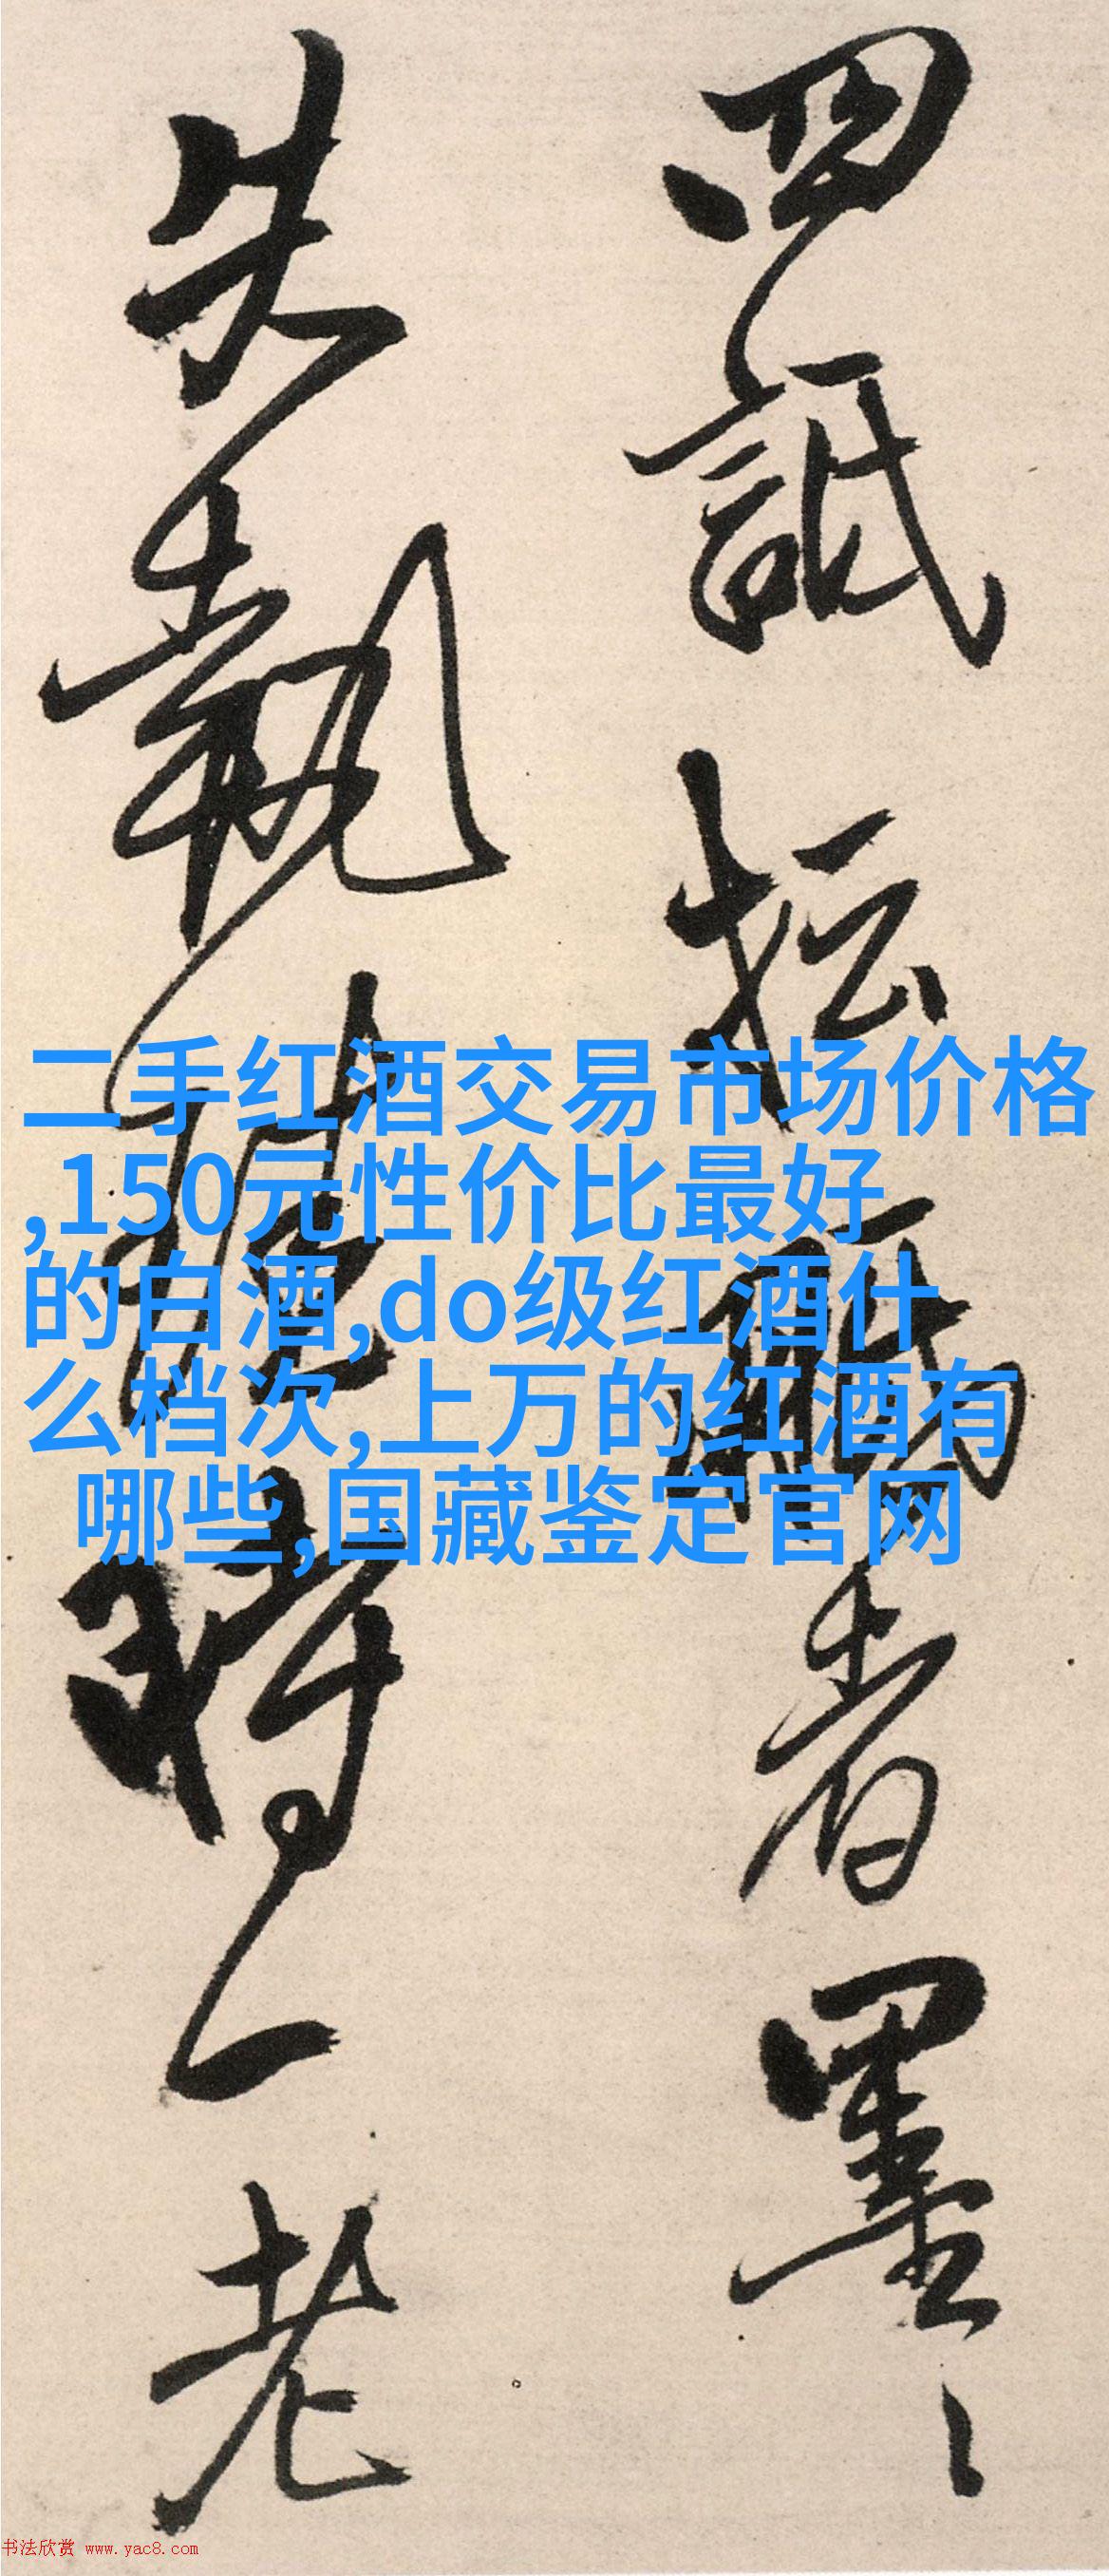 四詆抎
者墨〻
失執
時一老
二手红酒交易市场价格
,150元性价比最好
的白酒,do级红酒什
么档次,上万的红酒有
哪些,国藏鉴定官网
书法欣赏 www.yac8.com